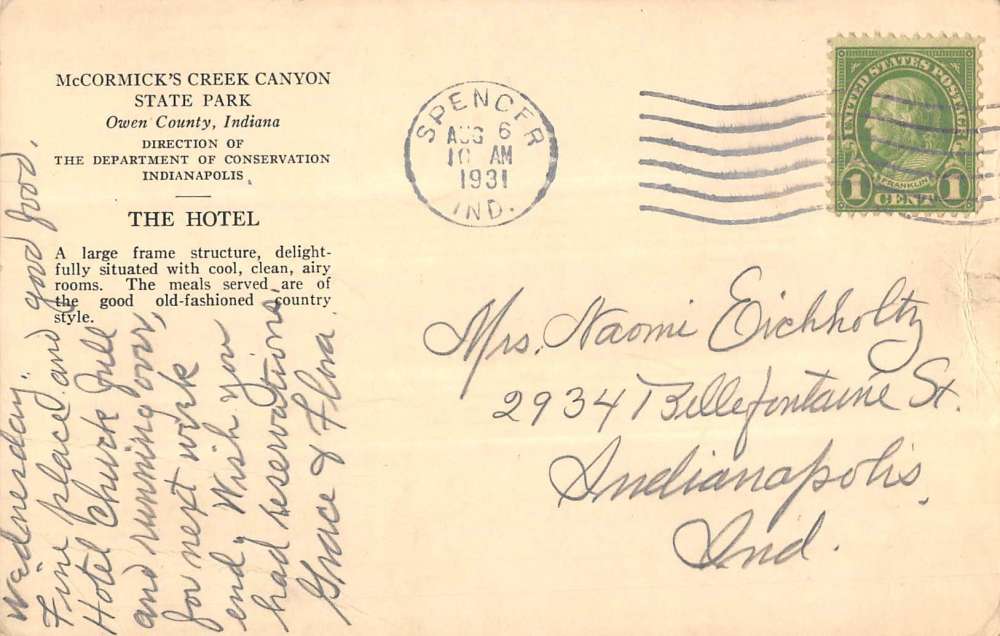 McCORMICK'S CREEK CANYON
STATE PARK
Owen County, Indiana
DIRECTION OF
THE DEPARTMENT OF CONSERVATION
INDIANAPOLIS
THE HOTEL
A large frame structure, delight-
fully situated with cool, clean, airy
rooms. The meals served are of
the good old-fashioned country
style.
Wednesday.
Fine place and good food.
Hotel chuck full
and running over,
for next work
end, Wish you
had reservations.
Grace & Flora
SPENCER
AUG 6
10 AM
1931
IND.
UNITED STATES POSTAGE
FRANKLIN
1 CENT 1
Mrs. Naomi Eichholtz
2934 Bellefontaine St.
Indianapolis,
Ind.